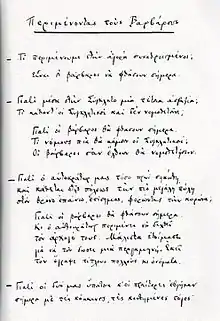 Περιμένοντας τους Βαρβάρους
— Τι περιμένουμε στην αγορά συναθροισμένοι;
Είναι οι βάρβαροι να φθάσουν σήμερα.
— Γιατί μέσα στην Σύγκλητο μια τέτοια απραξία;
Τι κάθοντ' οι Συγκλητικοί και δεν νομοθετούνε;
Γιατί οι βάρβαροι θα φθάσουν σήμερα.
Τι νόμους πια θα κάμουν οι Συγκλητικοί;
Οι βάρβαροι σαν έλθουν θα νομοθετήσουν.
— Γιατί ο αυτοκράτωρ μας τόσο πρωί σηκώθη,
και κάθεται στης πόλεως την πιο μεγάλη πύλη
στον θρόνο επάνω, επίσημος, φορώντας την κορώνα;
Γιατί οι βάρβαροι θα φθάσουν σήμερα.
Κι ο αυτοκράτωρ περιμένει να δεχθεί
τον αρχηγό τους. Μάλιστα ετοίμασε
για να τον δώσει μια περγαμηνή. Εκεί
τον έγραψε τίτλους πολλούς κι ονόματα.
— Γιατί οι δυο μας ύπατοι κ' οι πραίτορες εβγήκαν
σήμερα με τες κόκκινες, τες κεντημένες τόγες·